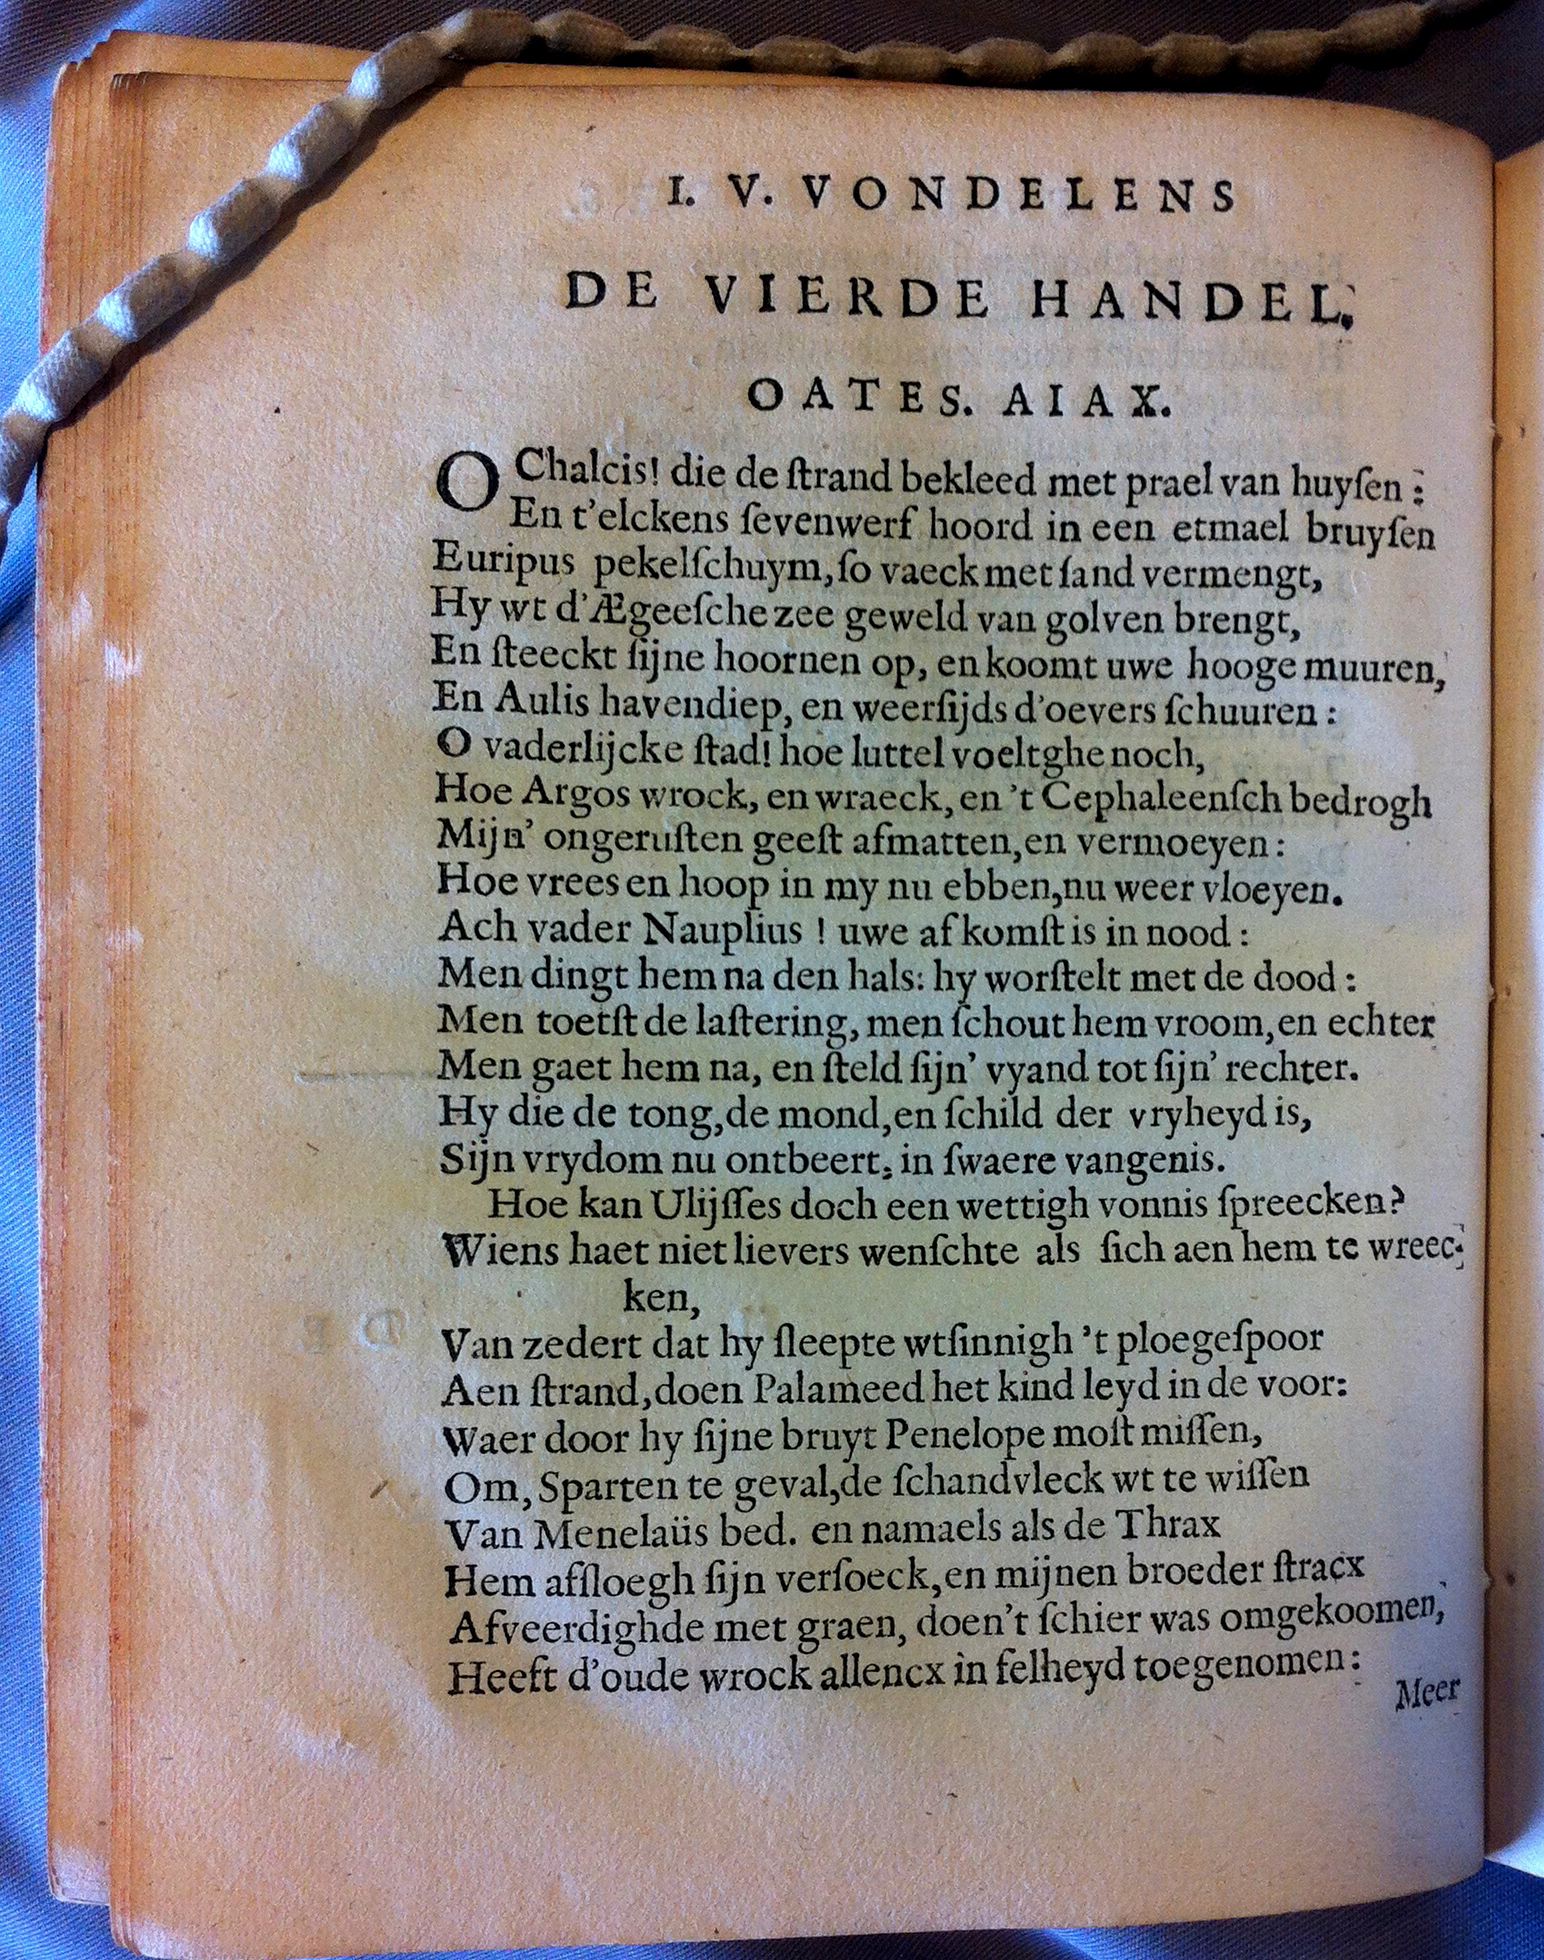 I. V. VONDELENS
DE VIERDE HANDEL.
OATES. AIAX.
O Chalcis! die de ſtrand bekleed met prael van huyſen:
En t'elckens ſevenwerf hoord in een etmael bruyſen
Euripus pekelſchuym, ſo vaeck met ſand vermengt,
Hy wt d'Ægeeſche zee geweld van golven brengt,
En ſteeckt ſijne hoornen op, en koomt uwe hooge muuren,
En Aulis havendiep, en weerſijds d'oevers ſchuuren:
O vaderlijcke ſtad! hoe luttel voeltghe noch,
Hoe Argos wrock, en wraeck, en 't Cephaleenſch bedrogh
Mijn' ongeruſten geeſt afmatten, en vermoeyen:
Hoe vrees en hoop in my nu ebben, nu weer vloeyen.
Ach vader Nauplius! uwe afkomſt is in nood:
Men dingt hem na den hals: hy worſtelt met de dood:
Men toetſt de laſtering, men ſchout hem vroom, en echter
Men gaet hem na, en ſteld ſijn' vyand tot ſijn' rechter.
Hy die de tong, de mond, en ſchild der vryheyd is,
Sijn vrydom nu ontbeert, in ſwaere vangenis.
Hoe kan Ulijſſes doch een wettigh vonnis ſpreecken?
Wiens haet niet lievers wenſchte als ſich aen hem te wreec-
ken,
Van zedert dat hy ſleepte wtſinnigh 't ploegeſpoor
Aen ſtrand, doen Palameed het kind leyd in de voor:
Waer door hy ſijne bruyt Penelope moſt miſſen,
Om, Sparten te geval, de ſchandvleck wt te wiſſen
Van Menelaüs bed. en namaels als de Thrax
Hem afſloegh ſijn verſoeck, en mijnen broeder ſtracx
Afveerdighde met graen, doen't ſchier was omgekoomen,
Heeft d'oude wrock allencx in felheyd toegenomen:
Meer